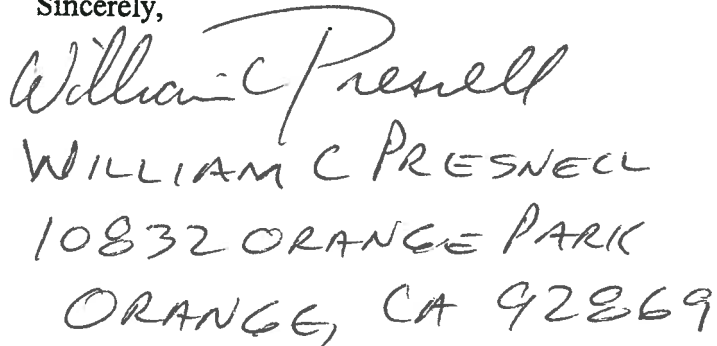 Sincerely,
William C Presnell
WILLIAM C PRESNELL
10832 ORANGE PARK
ORANGE, CA 92869